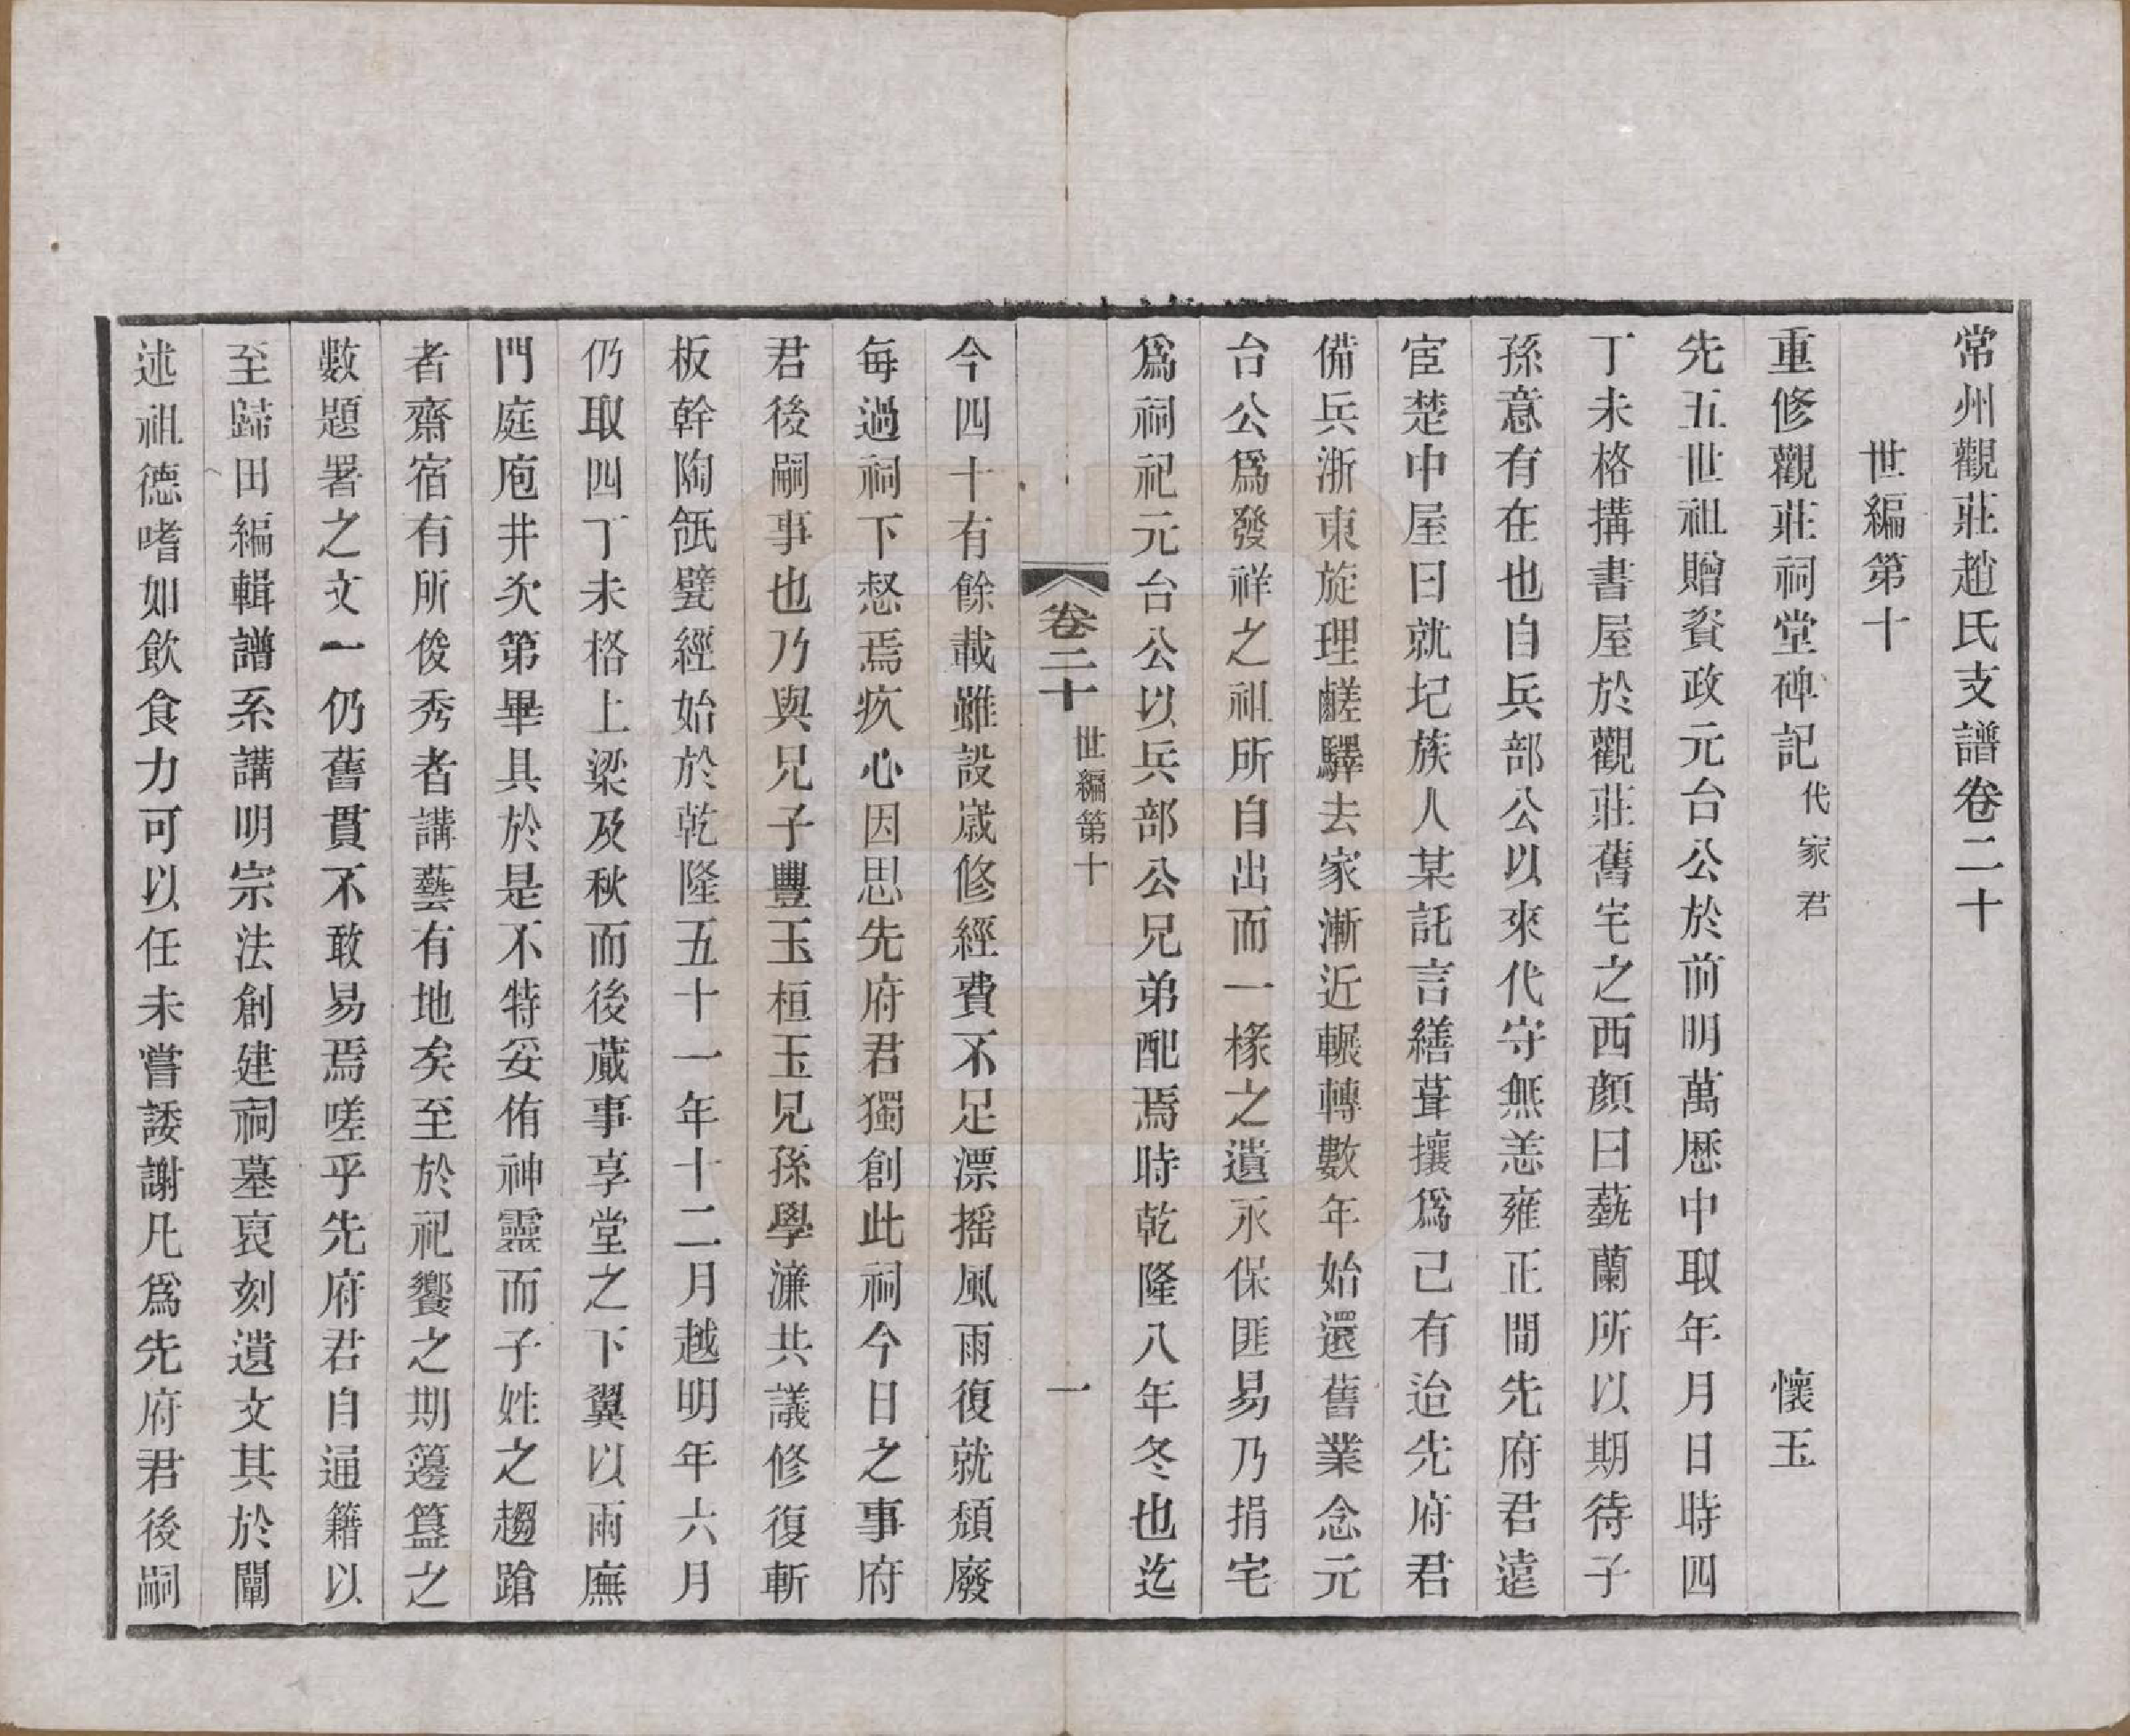 常州觀莊趙氏支譜卷二十
世編第十
重修觀莊祠堂碑記代家君 懷玉
先五世祖贈資政元台公於前明萬厯中取年月日時四
丁未格搆書屋於觀莊舊宅之西顏曰蓺蘭所以期待子
孫意有在也自兵部公以來代守無恙雍正間先府君遠
宦楚中屋日就圮族人某託言繕葺攘爲己有迨先府君
備兵浙東旋理鹺驛去家漸近輾轉數年始還舊業念元
台公爲發祥之祖所自出而一椽之遺永保匪易乃捐宅
爲祠祀元台公以兵部公兄弟配焉時乾隆八年冬也迄
卷二十 世編第十 一
今四十有餘載雖設歲修經費不足漂摇風雨復就頹廢
每過祠下惄焉疚心因思先府君獨創此祠今日之事府
君後嗣事也乃與兄子豐玉桓玉兄孫學濂共議修復斬
板幹陶瓴甓經始於乾隆五十一年十二月越明年六月
仍取四丁未格上梁及秋而後蕆事享堂之下翼以兩廡
門庭庖井次第畢具於是不特妥侑神靈而子姓之趨蹌
者齋宿有所俊秀者講藝有地矣至於祀饗之期籩簋之
數題署之文一仍舊貫不敢易焉嗟乎先府君自通籍以
至歸田編輯譜系講明宗法創建祠墓裒刻遺文其於闡
述祖德嗜如飲食力可以任未嘗諉謝凡爲先府君後嗣